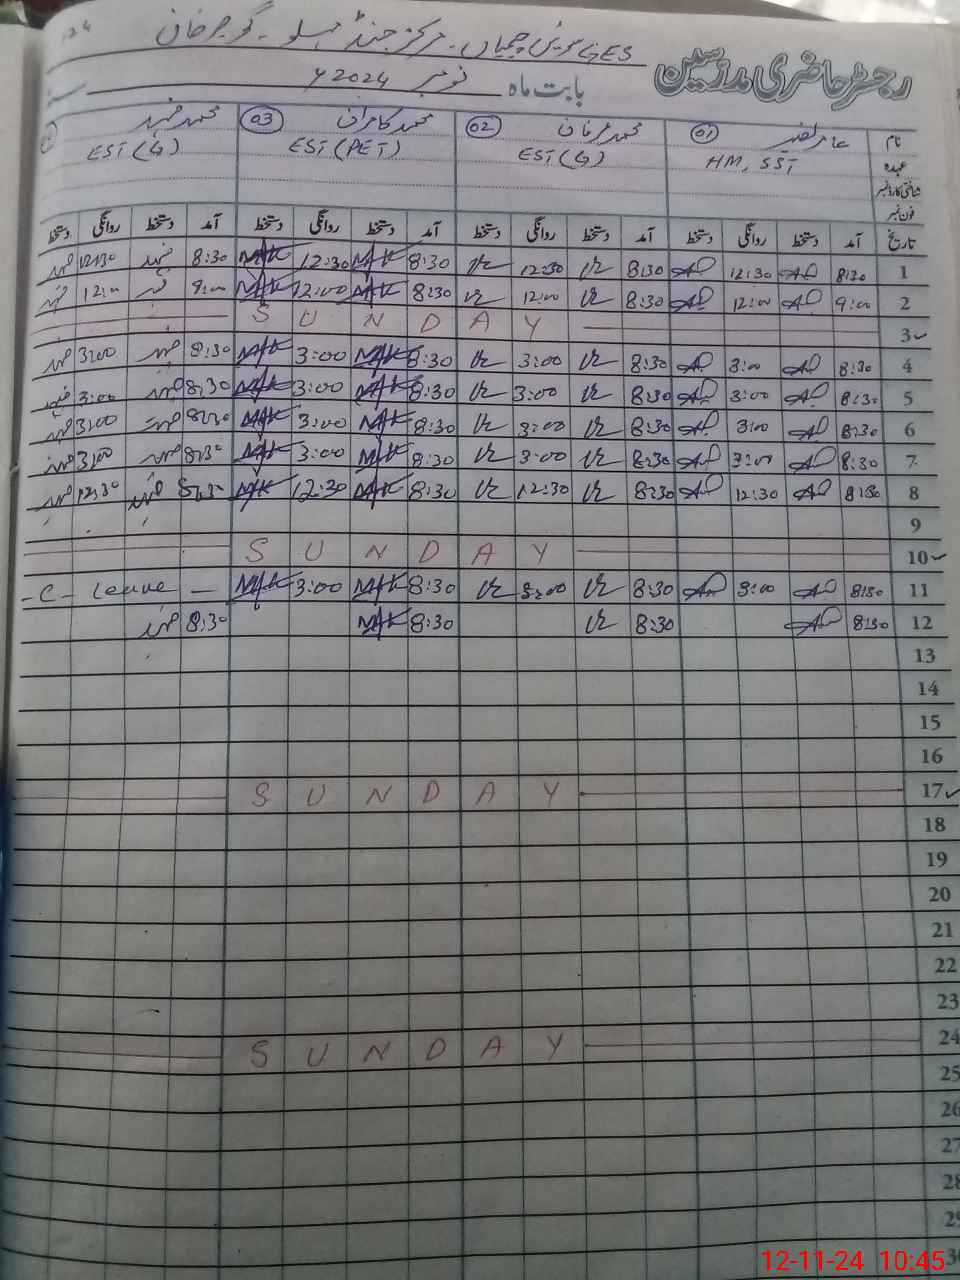 GES
رجسٹر حاضری مدرسین
بابت ماہ نومبر 2024ء
نام 01 عامر 02 محمد عرفان 03 محمد کامران محمد فہد
عہدہ HM, SST EST (G) EST (PET) EST (G)
شناختی کارڈ نمبر
فون نمبر
تاریخ آمد دستخط روانگی دستخط آمد دستخط روانگی دستخط آمد دستخط روانگی دستخط آمد دستخط روانگی دستخط
1 8:30 12:30 8:30 12:30 8:30 MAK 12:30 MAK 8:30 فہد 12:30 فہد
2 9:00 12:00 8:30 12:00 8:30 MAK 12:00 MAK 9:00 فہد 12:00 فہد
3 SUNDAY
4 8:30 3:00 8:30 3:00 8:30 MAK 3:00 MAK 8:30 فہد 3:00 فہد
5 8:30 3:00 8:30 3:00 8:30 MAK 3:00 MAK 8:30 فہد 3:00 فہد
6 8:30 3:00 8:30 3:00 8:30 MAK 3:00 MAK 8:30 فہد 3:00 فہد
7 8:30 3:00 8:30 3:00 8:30 MAK 3:00 MAK 8:30 فہد 3:00 فہد
8 8:30 12:30 8:30 12:30 8:30 MAK 12:30 MAK 8:30 فہد 12:30 فہد
9
10 SUNDAY
11 8:30 3:00 8:30 3:00 8:30 MAK 3:00 MAK - C - Leave -
12 8:30 8:30 8:30 MAK 8:30 فہد
13
14
15
16
17 SUNDAY
18
19
20
21
22
23
24 SUNDAY
25
26
27
28
29
30
12-11-24 10:45